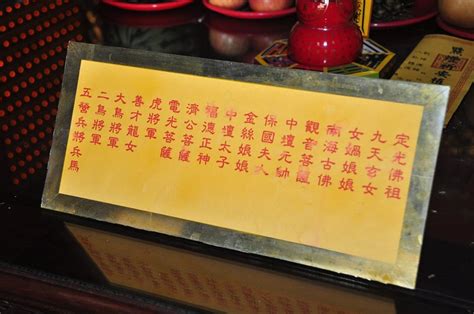 定光佛祖
九天玄女
女媧娘娘
南海古佛
觀音菩薩
中壇元帥
保國夫人
金絲娘娘
中壇太子
福德正神
濟公菩薩
電光菩薩
虎將軍
善才龍女
大鳥將軍
二鳥將軍
五營兵將兵馬